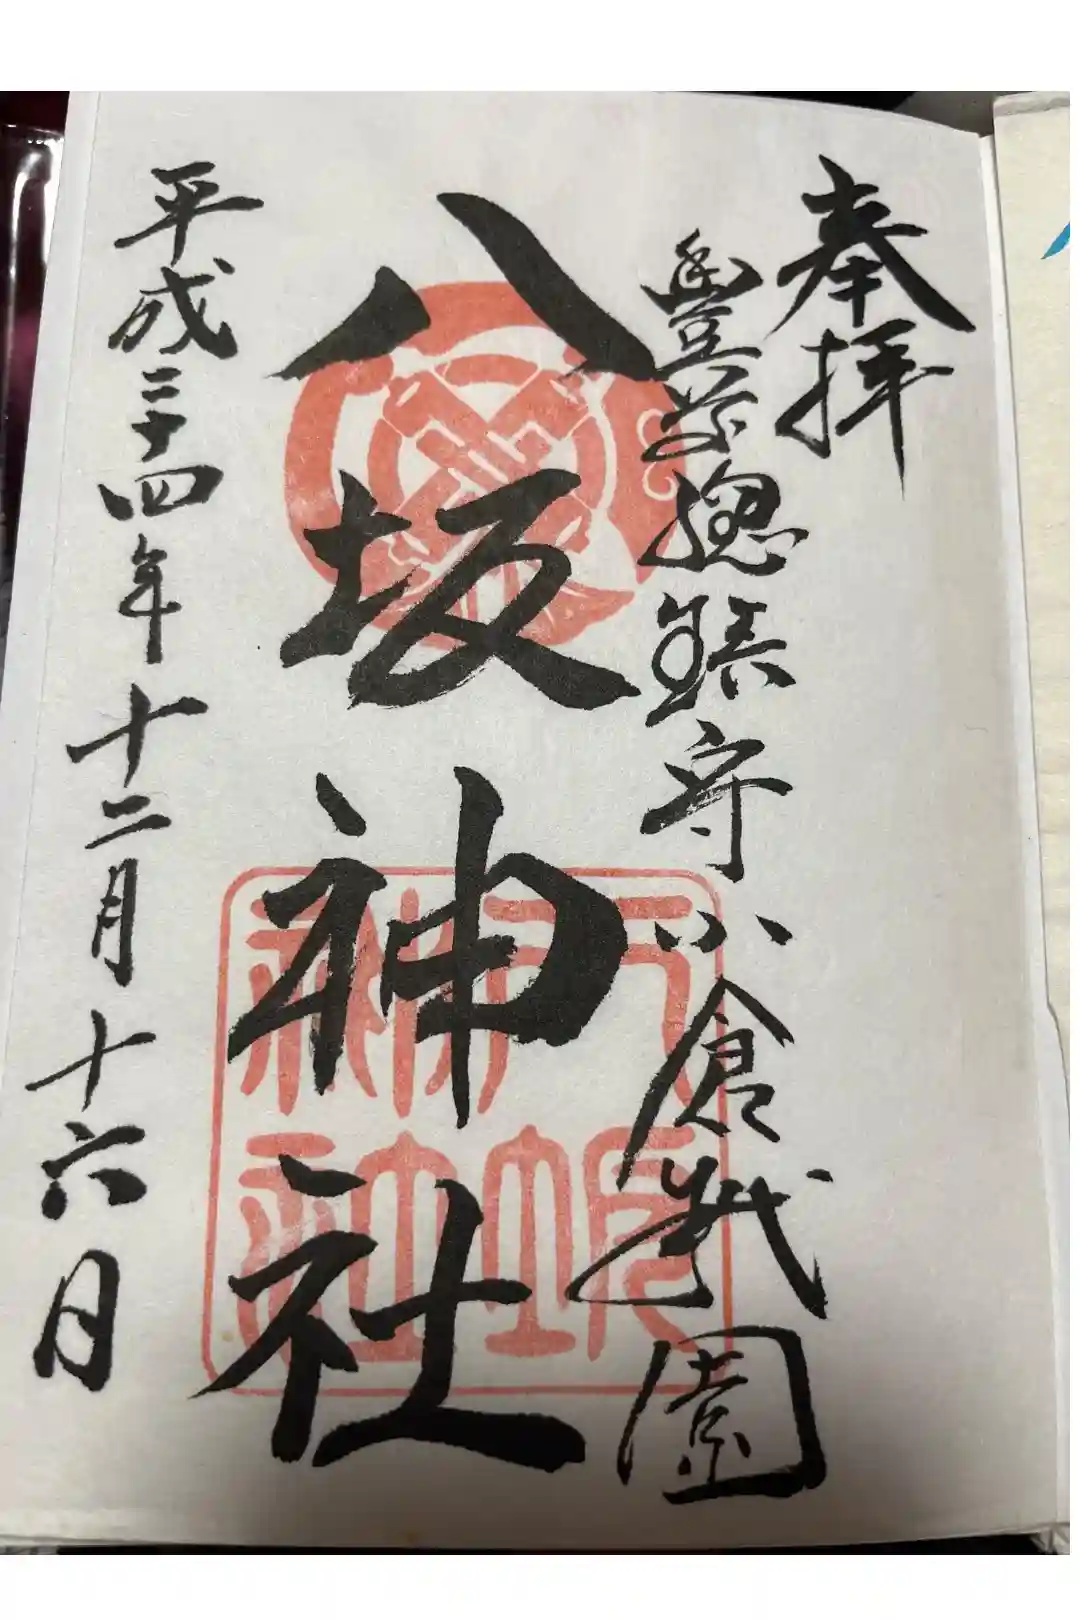 奉拝
豊前總鎮守小倉祇園
八坂神社
八坂神社
平成二十四年十二月十六日